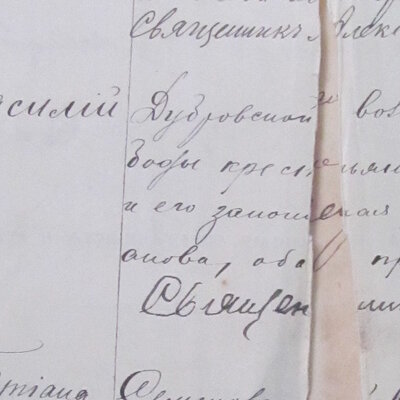 Священникъ Алек
асилій Дубровской вол
боды крес ьян
и его законная
анова, оба пр
Священ ни
тіана